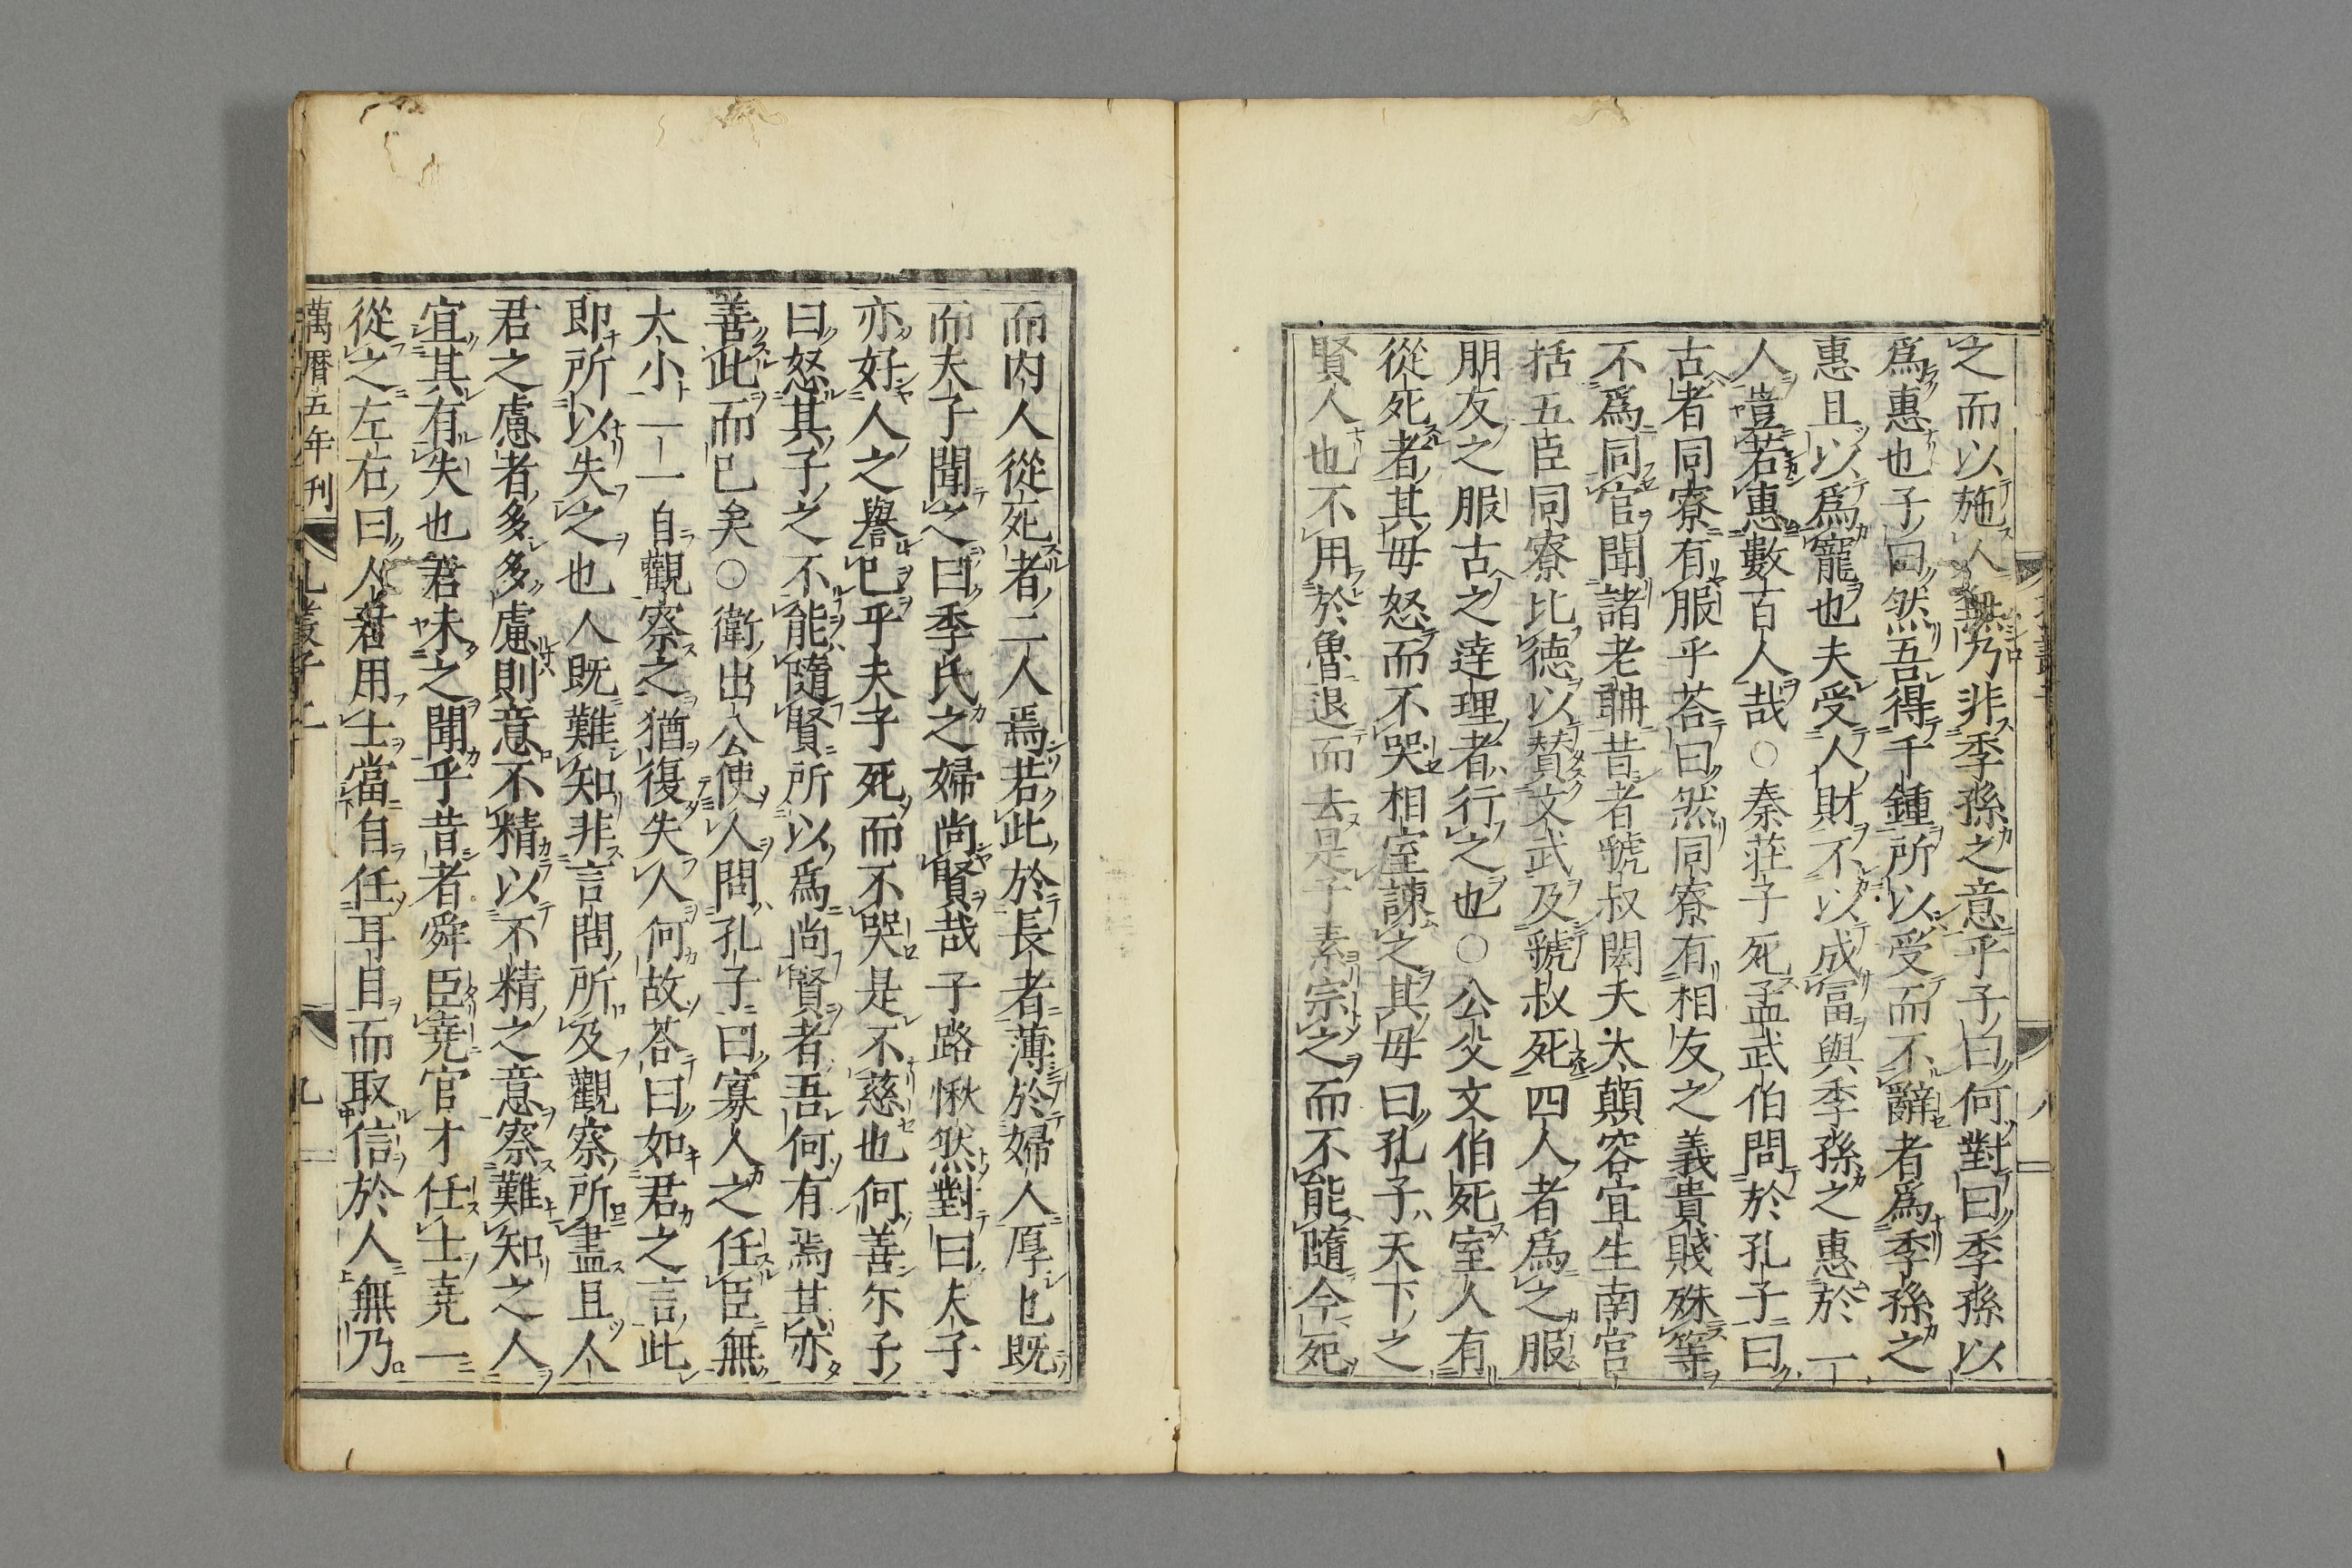 之而以施人無乃非季孫之意乎子曰何對曰季孫以
爲惠也子曰然吾得千鍾所以受而不辭者爲季孫之
惠且以爲寵也夫受人財不以成富與季孫之惠於一
人豈若惠數百人哉○秦莊子死孟武伯問於孔子曰
古者同寮有服乎荅曰然同寮有相友之義貴賤殊等
不爲同官聞諸老聃昔者虢叔閎夭太顛㪚宜生南宮
括五臣同寮比德以贊文武及虢叔死四人者爲之服
朋友之服古之逹理者行之也○公父文伯死室人有
從死者其母怒而不哭相室諫之其母曰孔子天下之
賢人也不用於魯退而去是子素宗之而不能隨今死
而内人從死者二人焉若此於長者薄於婦人厚也既
而夫子聞之曰季氏之婦尚賢哉 子路愀然對曰夫子
亦好人之譽已乎夫子死而不哭是不慈也何善尓子
曰怒其子之不能隨賢所以爲尚賢者吾何有焉其亦
善此而已矣○衛出公使人問孔子曰寡人之任臣無
大小一一自觀察之猶復失人何故荅曰如君之言此
即所以失之也人既難知非言問所及觀察所盡且人
君之慮者多多慮則意不精以不精之意察難知之人
宜其有失也君未之聞乎昔者舜臣堯官才任士堯一
從之左右曰人君用士當自任耳目而取信於人無乃
萬曆五年刊
孔叢子二
九